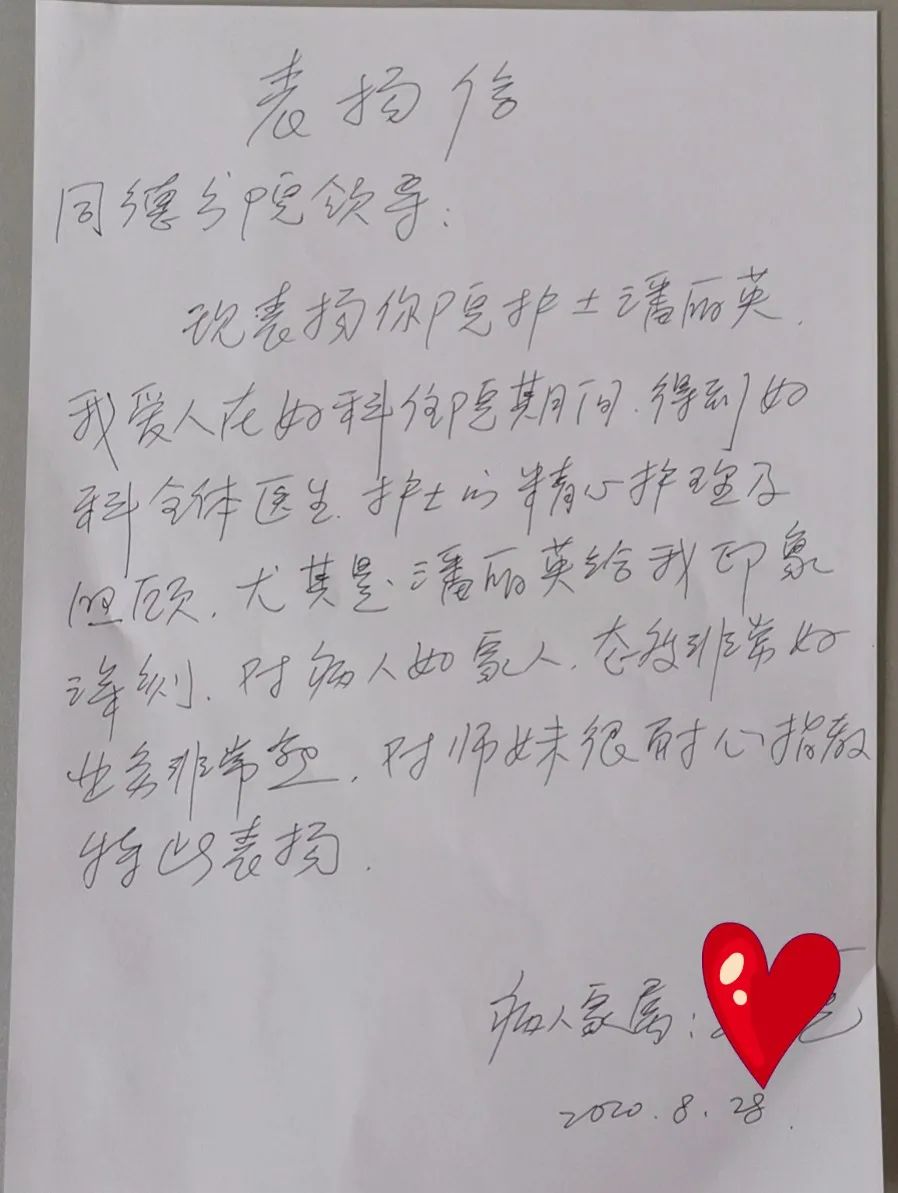 表扬信
同德分院领导:
现表扬你院护士潘丽英.
我爱人在妇科住院期间.得到妇
科全体医生.护士的精心护理及
照顾.尤其是潘丽英给我印象
深刻.对病人如家人.态度非常好
业务非常熟.对师妹很耐心指教
特此表扬.
病人家属:
2020.8.28.